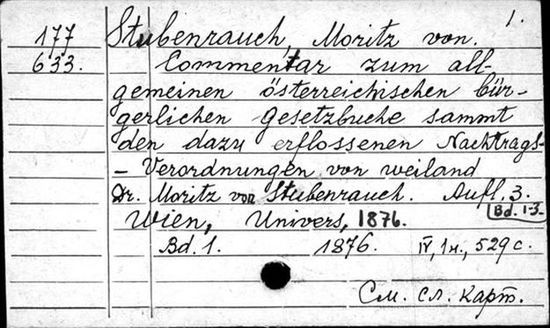 1.
177 Stubenrauch, Moritz von.
633. Commentar zum all-
gemeinen österreichischen bür-
gerlichen Gesetzbuche sammt
den dazu erflossenen Nachtrags-
- Verordnungen von weiland
Dr. Moritz von Stubenrauch. Aufl. 3.
Wien, Univers, 1876. Bd. 1-3
Bd. 1. 1876. IV, 1н., 529 с.
См. сл. карт.